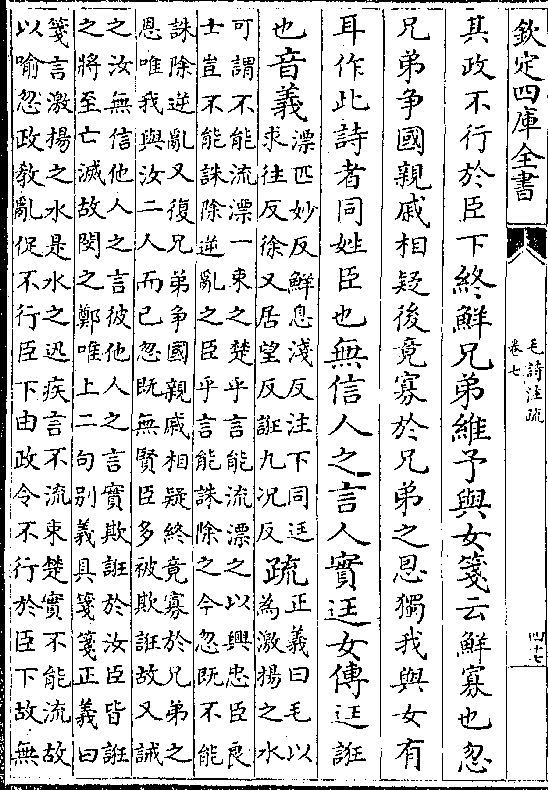 欽定四庫全書
毛詩注疏
卷七
四十七
其政不行於臣下終鮮兄弟維予與女箋云鮮寡也忽
兄弟争國親戚相疑後竟寡於兄弟之恩獨我與女有
耳作此詩者同姓臣也無信人之言人實迋女傳迋誑
也音義
漂匹妙反鮮息淺反注下同迋
求往反徐又居望反誑九况反
疏
正義曰毛以
為激揚之水
可謂不能流漂一束之楚乎言能流漂之以興忠臣良
士豈不能誅除逆亂之臣乎言能誅除之今忽既不能
誅除逆亂又復兄弟争國親戚相疑終竟寡於兄弟之
恩唯我與汝二人而已忽既無賢臣多被欺誑故又誡
之汝無信他人之言彼他人之言實欺誑於汝臣皆誑
之將至亡滅故閔之鄭唯上二句别義具箋箋正義曰
箋言激揚之水是水之迅疾言不流束楚實不能流故
以喻忽政教亂促不行臣下由政令不行於臣下故無